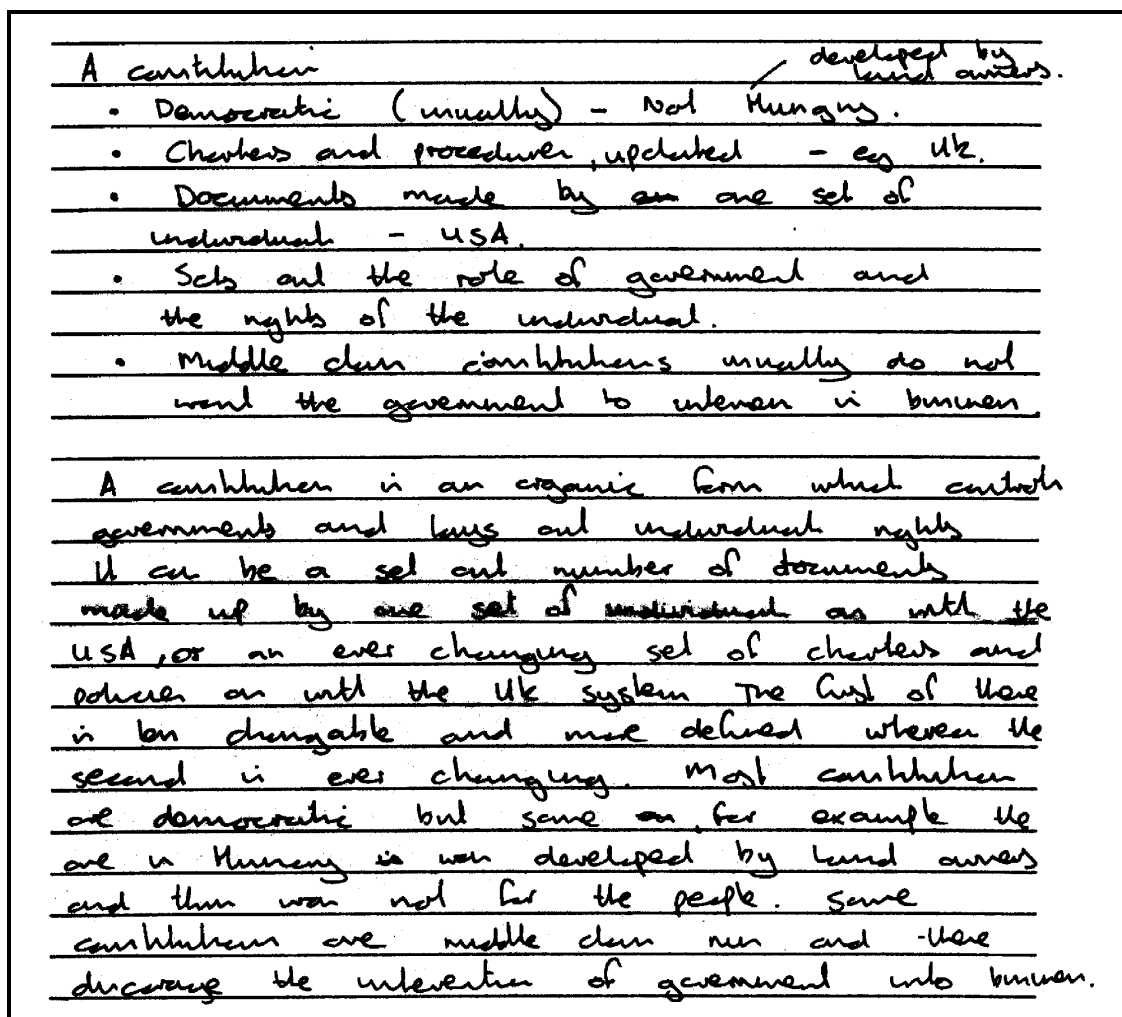 A constitution
developed by
land owners.
• Democratic (usually) - Not Hungry.
• Charters and procedures, updated - eg Uk.
• Documents made by one set of
individuals - USA.
• Sets out the role of government and
the rights of the individual.
• Middle class constitutions usually do not
want the government to interven in business.
A constitution is an organic form which controls
governments and lays out individuals rights
it can be a set out number of documents
made up by one set of individuals as with the
USA, or an ever changing set of charters and
policies as with the Uk system The first of these
is less changable and more defined whereas the
second is ever changing. Most constitution
are democratic but some, for example the
one in Hungry was developed by land owners
and thus was not for the people. Some
constitutions are middle class run and these
discourage the intervention of government into business.